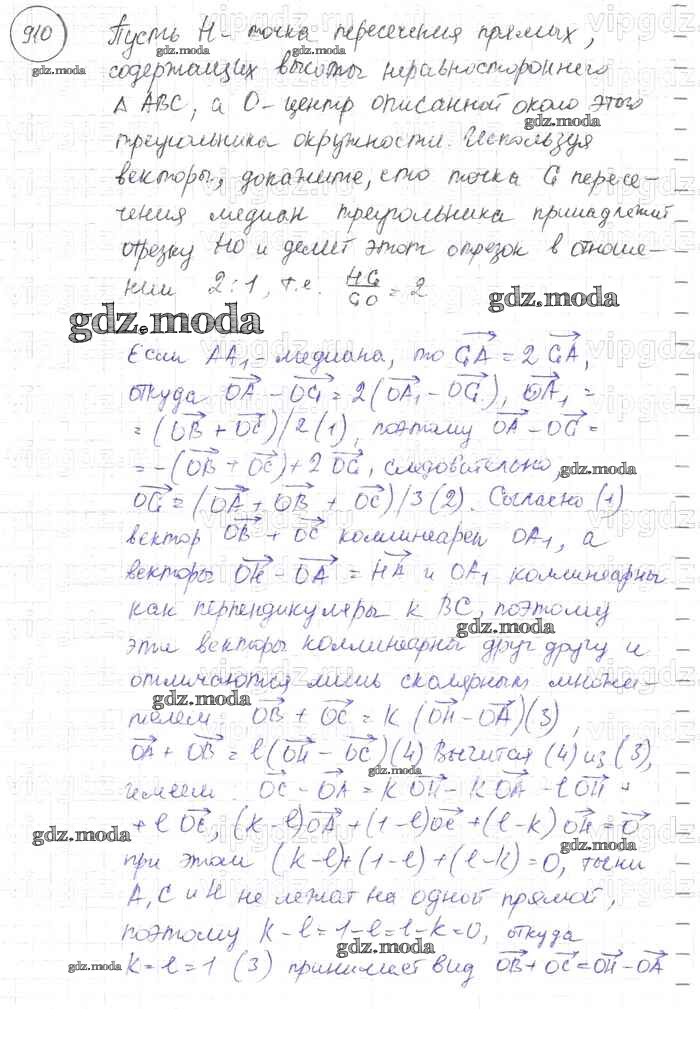 910
Пусть H - точка пересечения прямых,
содержащих высоты неравностороннего
Δ ABC, а O - центр описанной около этого
треугольника окружности. Используя
векторы, докажите, что точка G пересе-
чения медиан треугольника принадлежит
отрезку HO и делит этот отрезок в отноше-
нии 2:1, т.е. HG/GO = 2
Если AA₁ - медиана, то GA = 2 GA,
откуда OA - OG = 2(OA₁ - OG), OA₁ =
= (OB + OC)/2 (1), поэтому OA - OG =
= -(OB + OC) + 2OG, следовательно,
OG = (OA + OB + OC)/3 (2). Согласно (1)
вектор OB + OC коллинеарен OA₁, а
векторы OH - OA = HA и OA₁ коллинеарны
как перпендикуляры к BC, поэтому
эти векторы коллинеарны друг другу и
отличаются лишь скалярным множи-
телем: OB + OC = K (OH - OA) (3),
OA + OB = l(OH - OC) (4) Вычитая (4) из (3),
имеем: OC - OA = K OH - K OA - l OH +
+ l OC, (K - l)OA + (1 - l)OC + (l - K) OH = O
при этом (K - l) + (1 - l) + (l - K) = 0, точки
A, C и H не лежат на одной прямой,
поэтому K - l = 1 - l = l - K = 0, откуда
K = l = 1 (3) принимает вид OB + OC = OH - OA
gdz.moda
vipgdz.ru